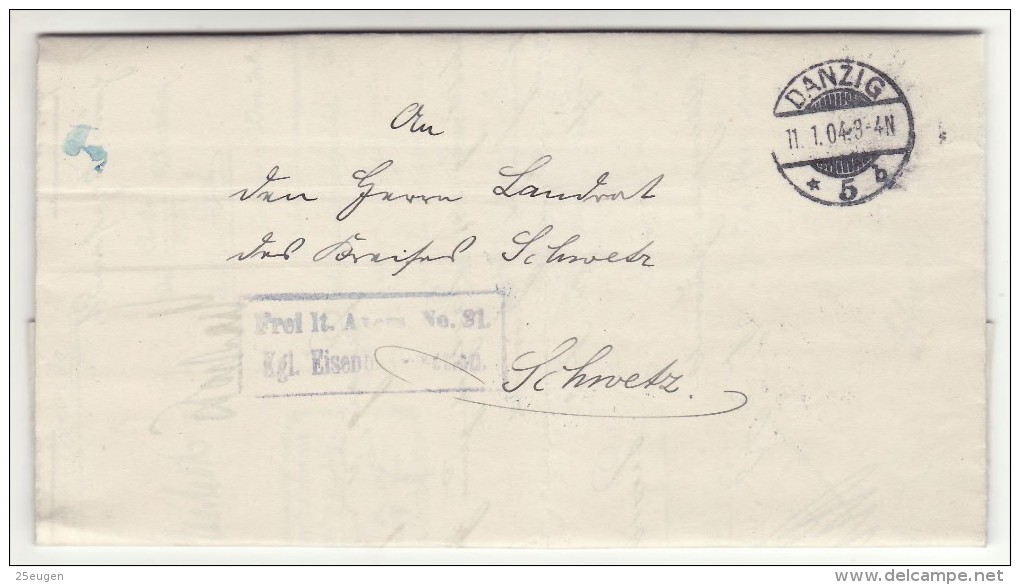 DANZIG
11. 1. 04. 3-4N
* 5 b
An
den Herrn Landrat
des Kreises Schwetz
Frei lt. Avers No. 21.
Kgl.
Schwetz.
25eugen
delcampe.net